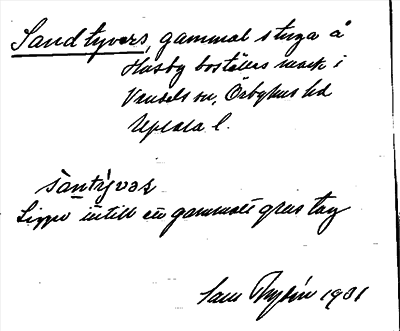 Sandtyvers, gammal stuga å
Husby boställes mark i
Vendels sn, Örbyhus hd
Uppsala l.
säntývas
Ligger intill en gammalt grustag
Sam 1931